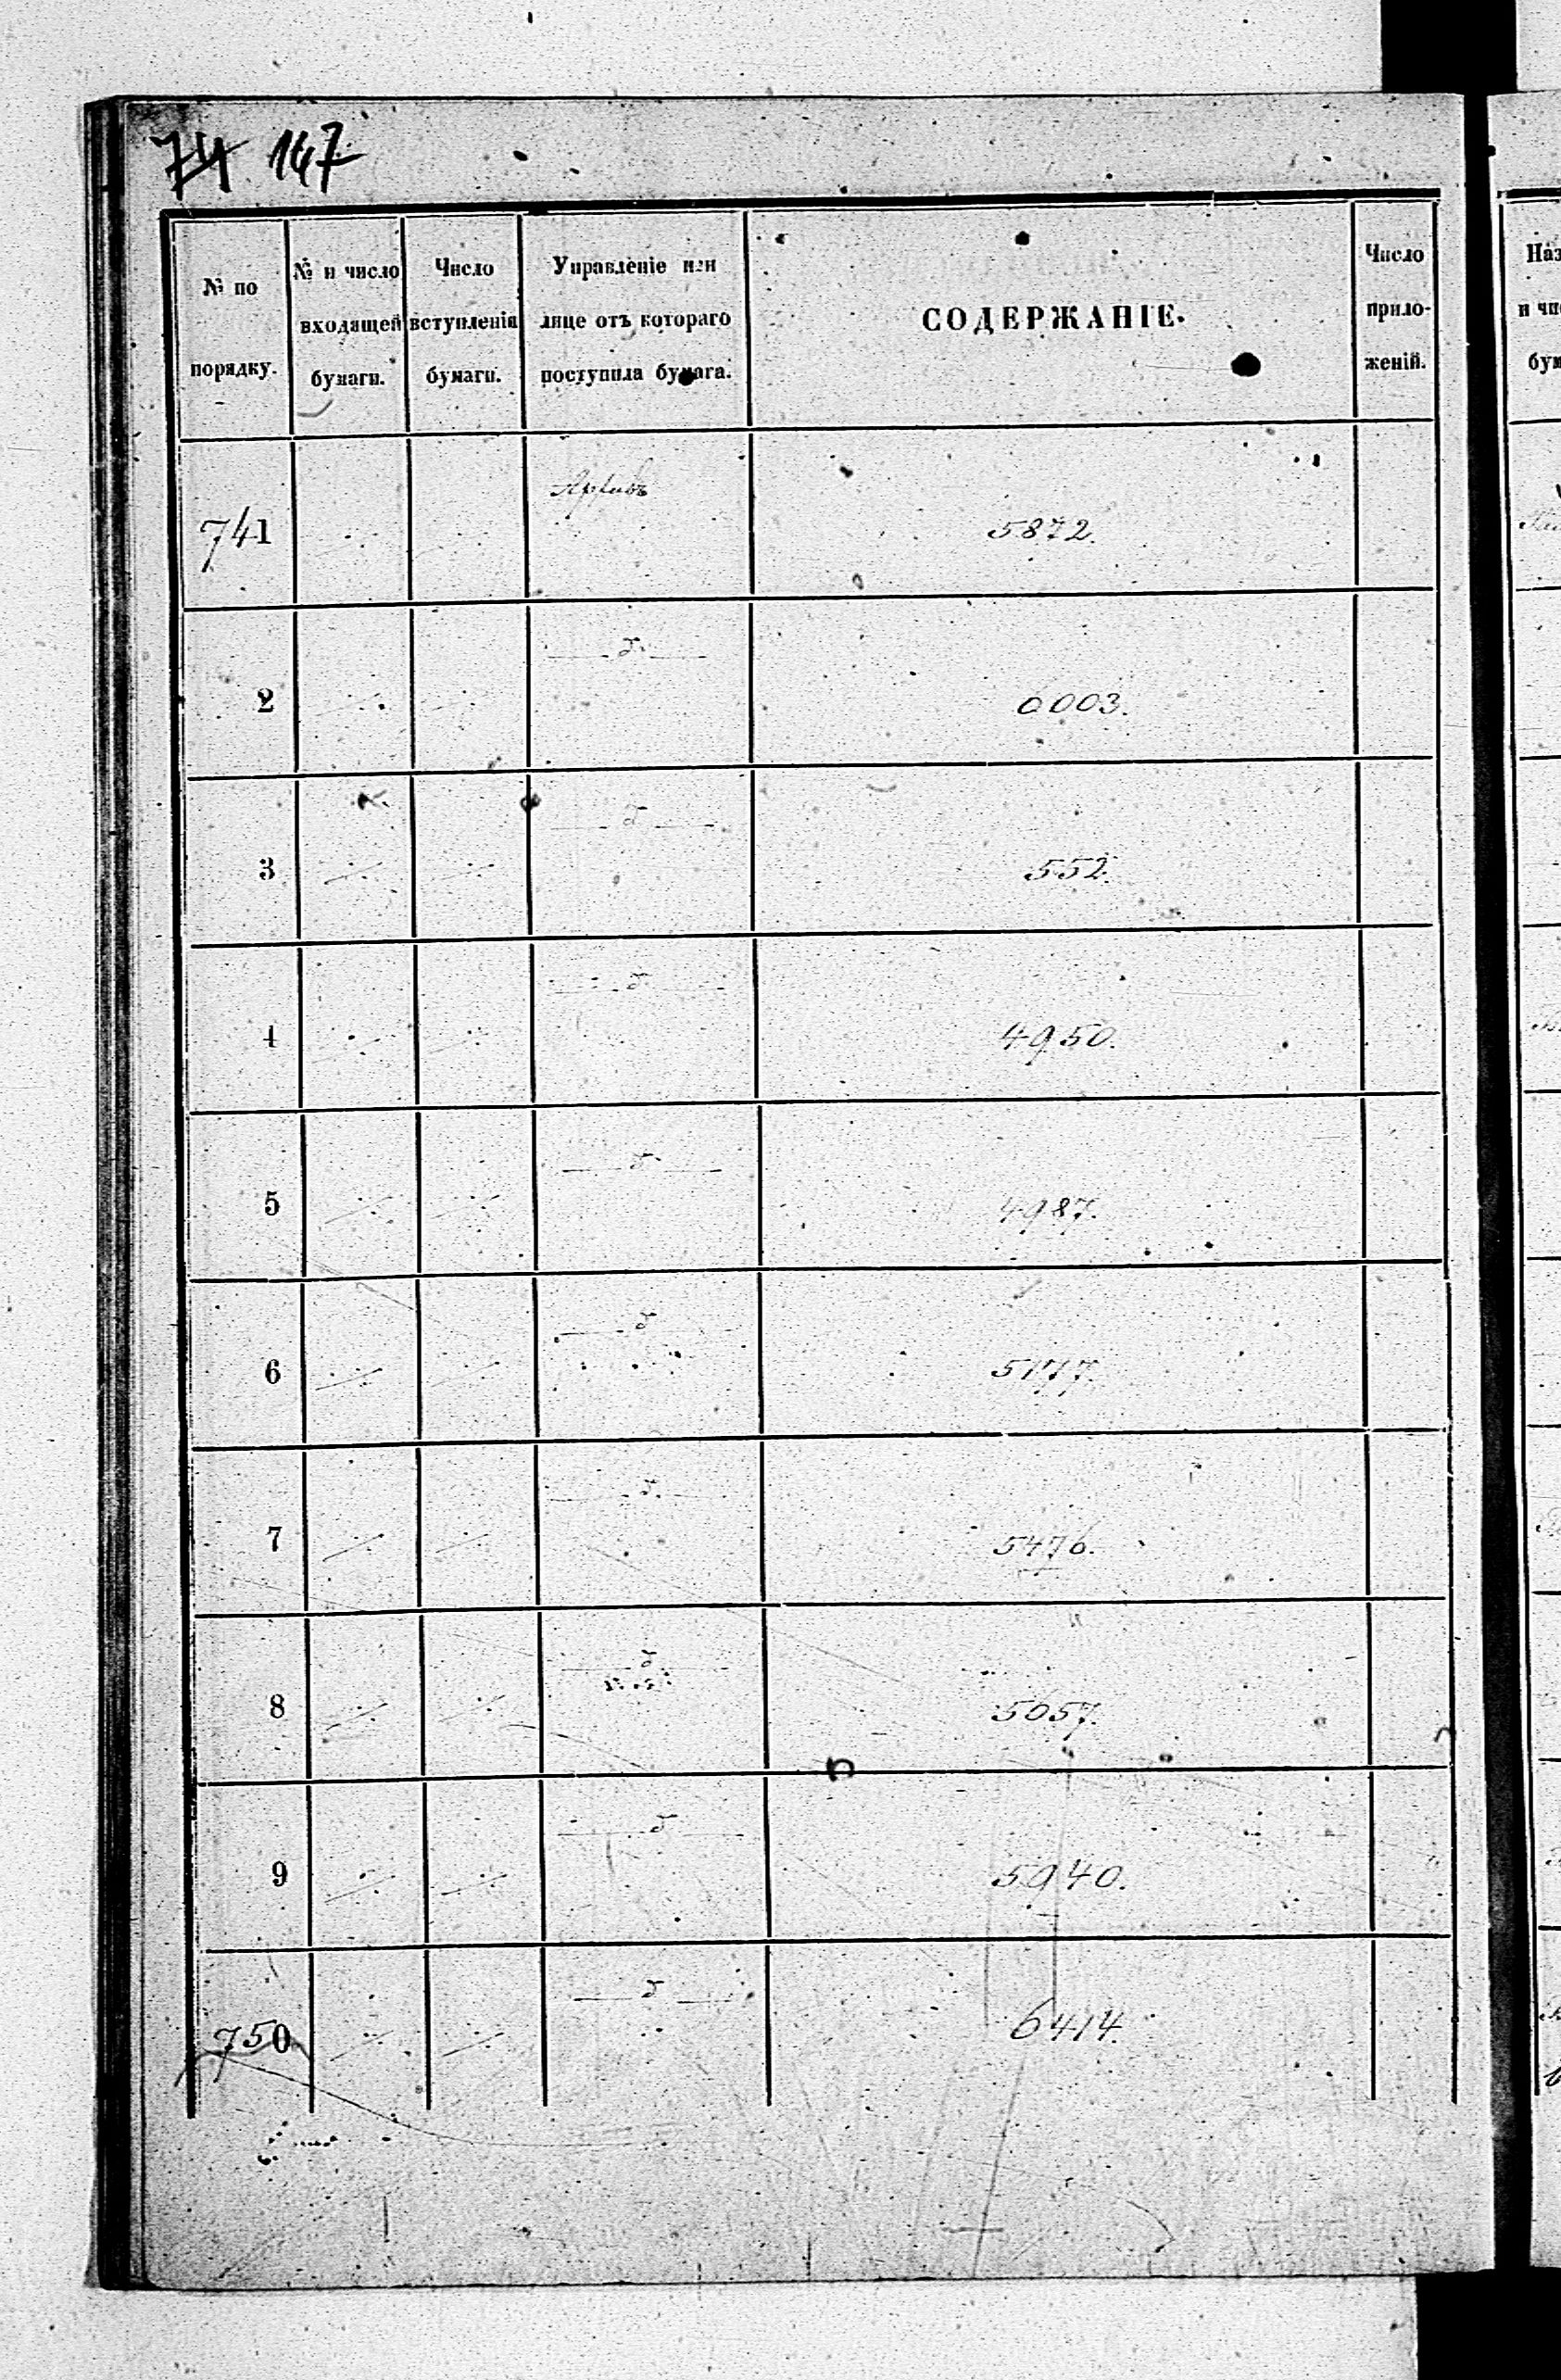 74 147
№ по порядку.
№ и число входящей бумаги.
Число вступленія бумаги.
Управленіе или лице отъ котораго поступила бумага.
СОДЕРЖАНІЕ.
Число приложеній.
741 ·/. ·/. Архивъ 5872.
2 ·/. ·/. —д— 6003.
3 ·/. ·/. —д— 552.
4 ·/. ·/. —д— 4950.
5 ·/. ·/. —д— 4987.
6 ·/. ·/. —д— 5177.
7 ·/. ·/. —д— 5476.
8 ·/. ·/. —д— 5057.
9 ·/. ·/. —д— 5940.
750 ·/. ·/. —д— 6414.